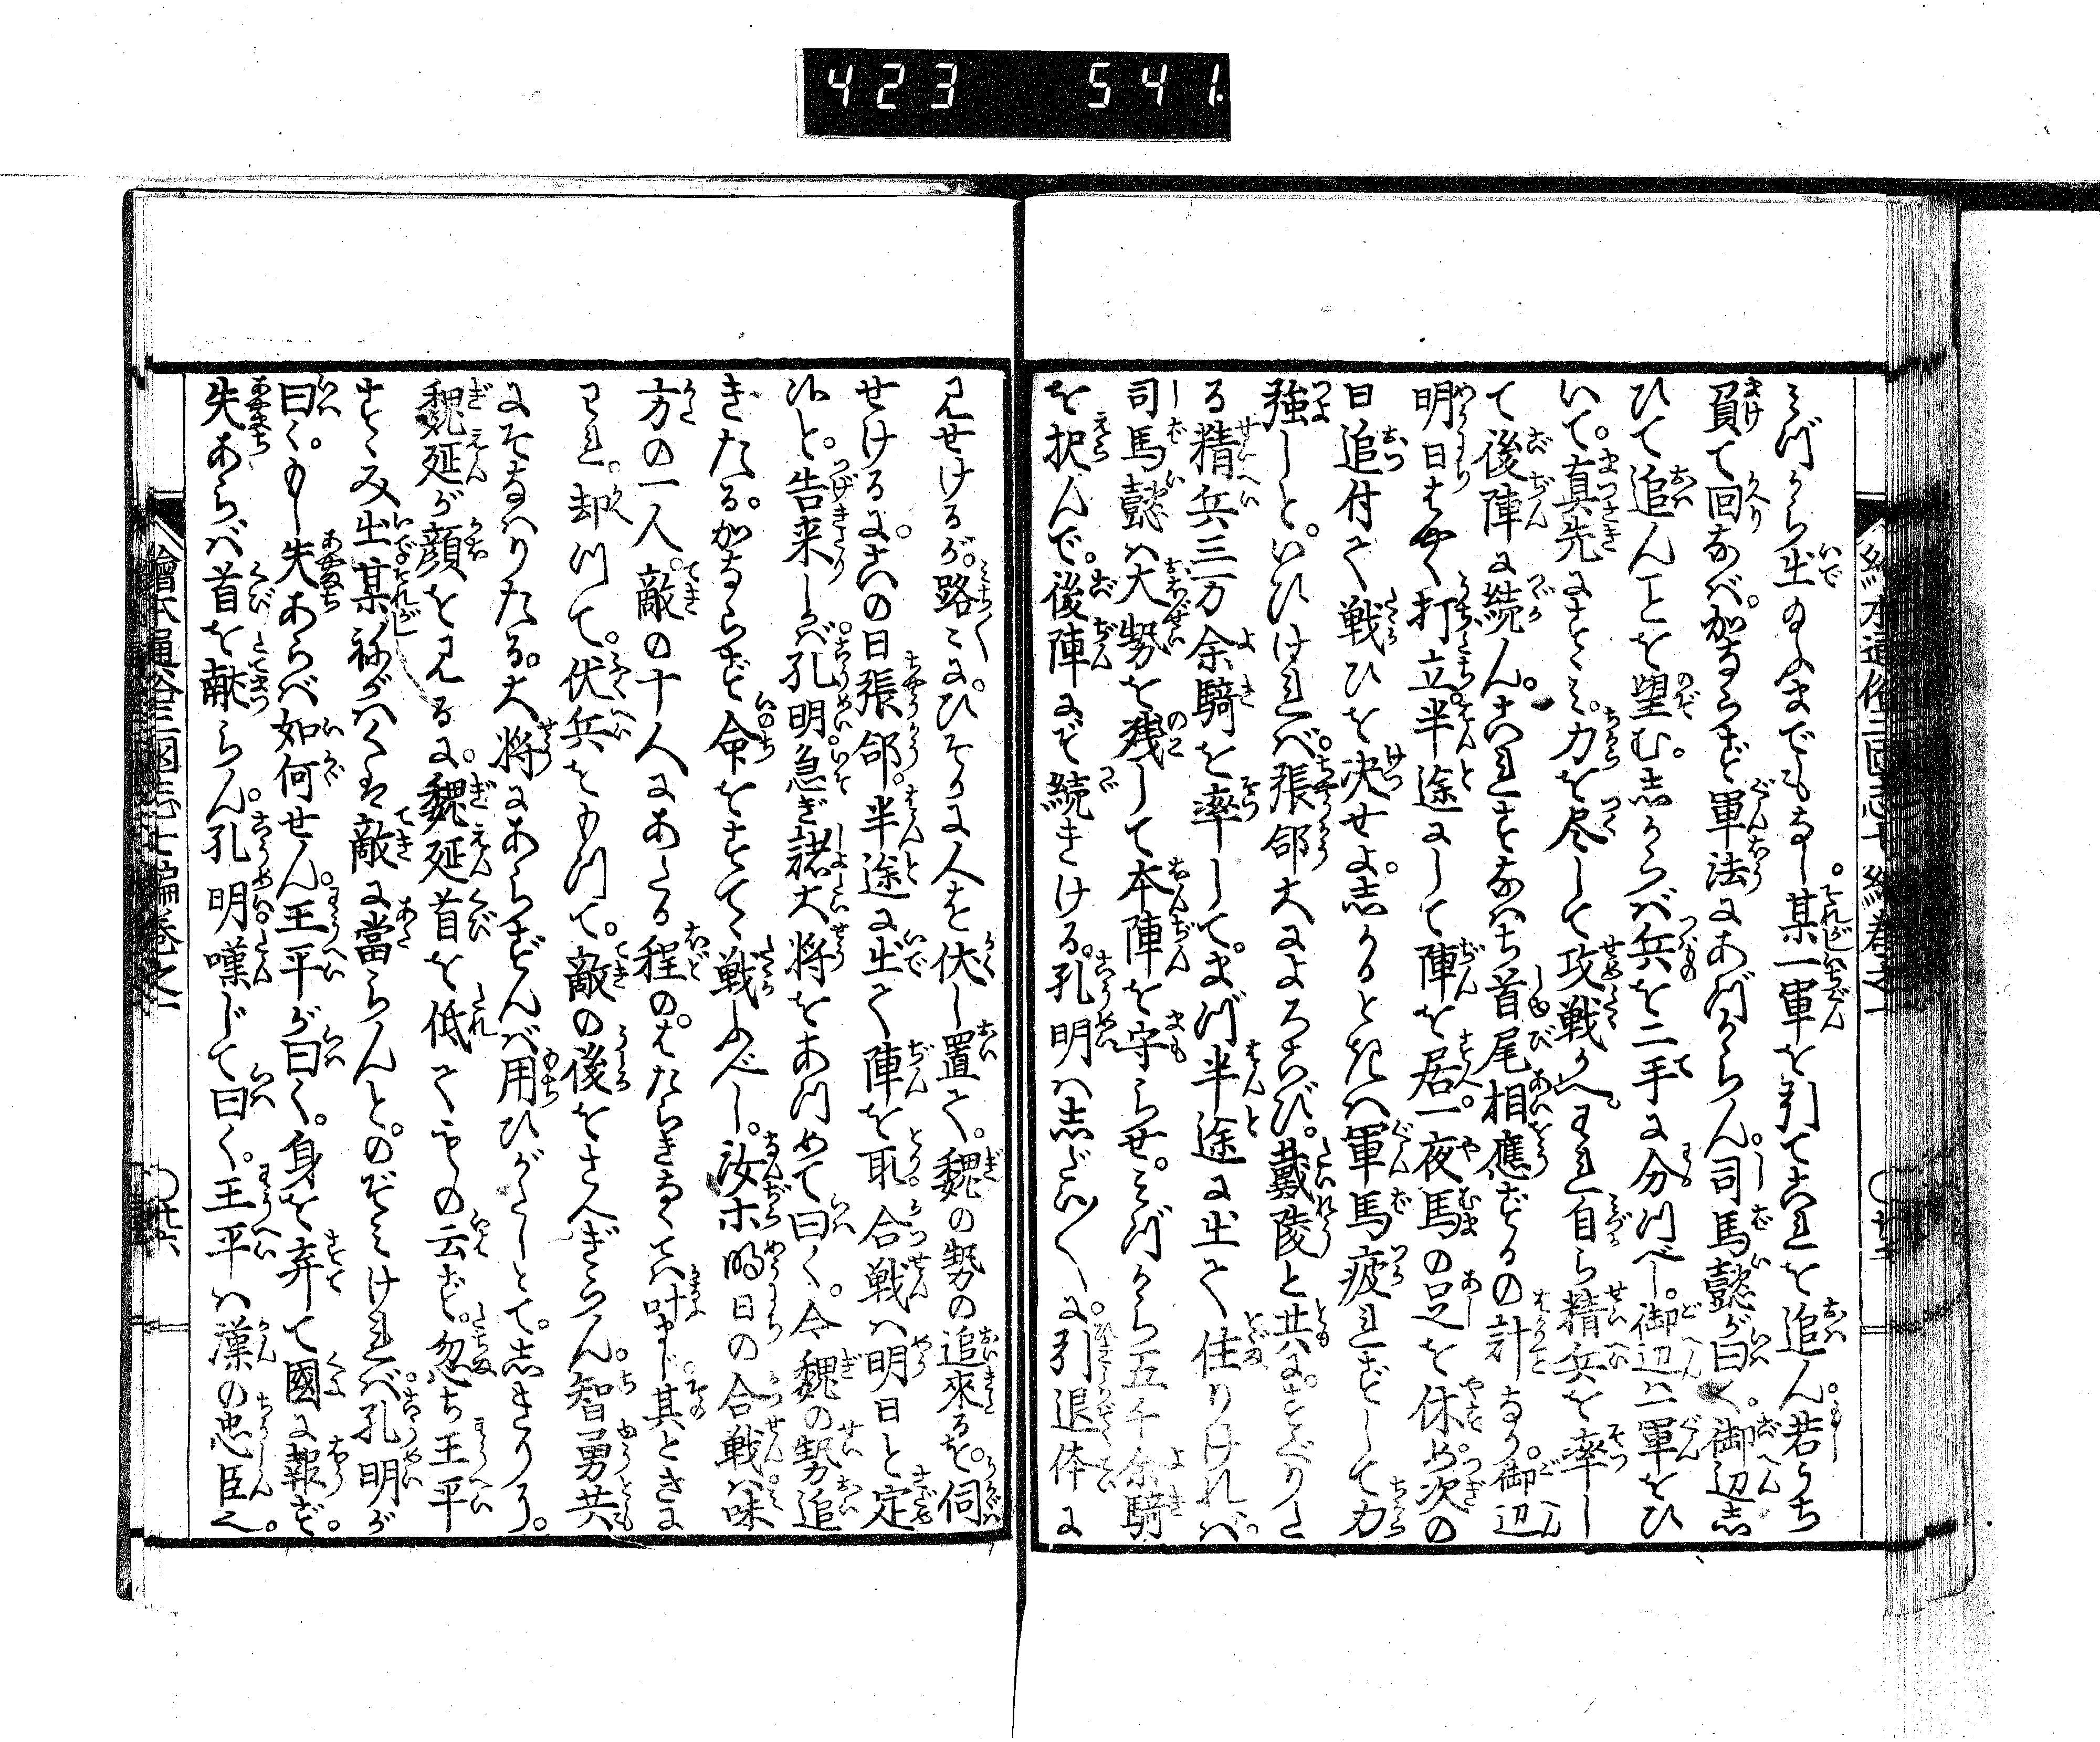 423 541
みづから出るまでもなし某一軍を引てこれを追ん若うち
負て回なバ加ならず軍法にあづからん司馬懿が曰く御辺志
ひて追んことを望む志からバ兵を二手に分つべし御辺ハ一軍をひ
いて真先にすゝミ力を尽して攻戦へわれ自ら精兵を率し
て後陣に続んこれすなハち首尾相應ずるの計なり御辺
明日はやく打立半途にして陣を居一夜馬の足を休め次の
日追付て戦ひを決せよ志かるときハ軍馬疲れずして力
強しといひけれバ張郃大によろこび戴陵と共にすぐりたる
る精兵三万余騎を率してまづ半途に出て住りけれバ
司馬懿ハ大勢を残して本陣を守らせみづから五千余騎
を択んで後陣にぞ続きける孔明ハ志づ〱に引退体に
見せけるが路〱にひそかに人を伏し置て魏の勢の追來るを伺
せけるにこの日張郃半途に出て陣を取合戦ハ明日と定
候と告来しかバ孔明急ぎ諸大将をあつめて曰く今魏の勢追
きたる加ならず命をすてゝ戦ふべし汝ホ明日の合戦ハ味
方の一人敵の十人にあたる程のはたらきなくてハ叶まじ其ときに
われ却つて伏兵をもつて敵の後をさへぎらん智勇共
にそなハりたる大将にあらずんバ用ひがたしとて志きりに
魏延が顔を見るに魏延首を低てものも云ず忽ち王平
すゝみ出某祢がハくハ敵に當らんとのぞミけれバ孔明が
曰くもし失あらバ如何せん王平が曰く身を弃て國に報ず
失あらバ首を献らん孔明嘆じて曰く王平ハ漢の忠臣也
繪本通俗三國志七編巻之一